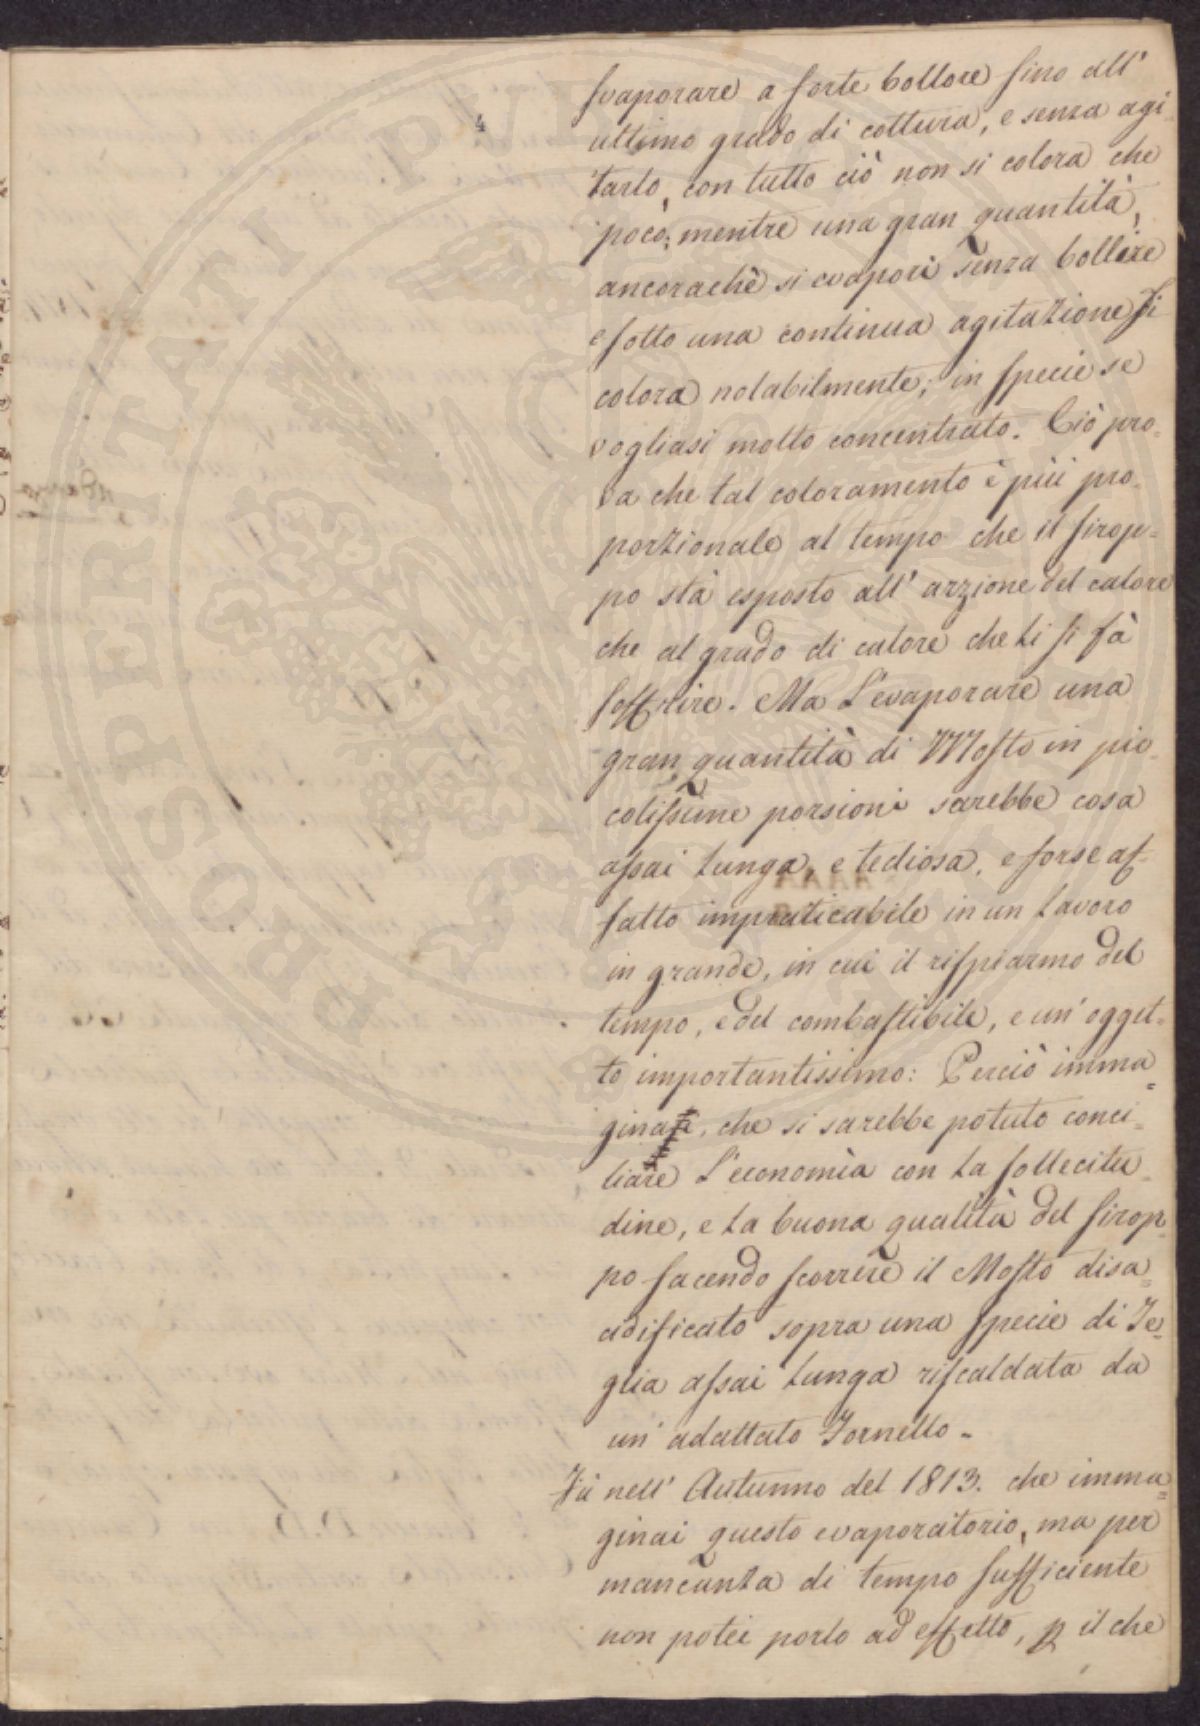 4
svaporare a forte bollore fino all'
ultimo grado di cottura, e senza agi-
tarlo, con tutto ciò non si colora che
poco; mentre una gran quantità,
ancorachè si evapori senza bollire
e sotto una continua agitazione si
colora notabilmente; in specie se
vogliasi molto concentrato. Ciò pro-
va che tal coloramento è più pro-
porzionale al tempo che il sirop-
po stà esposto all' azzione del calore
che al grado di calore che li si fà
soffrire. Ma l'evaporare una
gran quantità di Mosto in pic-
colissime porsioni sarebbe cosa
assai lunga, e tediosa, e forse af-
fatto impraticabile in un lavoro
in grande, in cui il rispiarmo del
tempo, e del combastibile, e un' ogget-
to importantissimo: Perciò imma-
ginai, che si sarebbe potuto conci-
liare l'economìa con la sollecitu-
dine, e la buona qualità del sirop-
po facendo scorrere il Mosto disa-
cidificato sopra una specie di Te-
glia assai lunga riscaldata da
un' adattato Fornello -
Fù nell' Autunno del 1813. che imma-
ginai questo evaporatorio, ma per
mancanza di tempo sufficiente
non potei porlo ad effetto, p il che
PROSPERITATI PVBLICAE